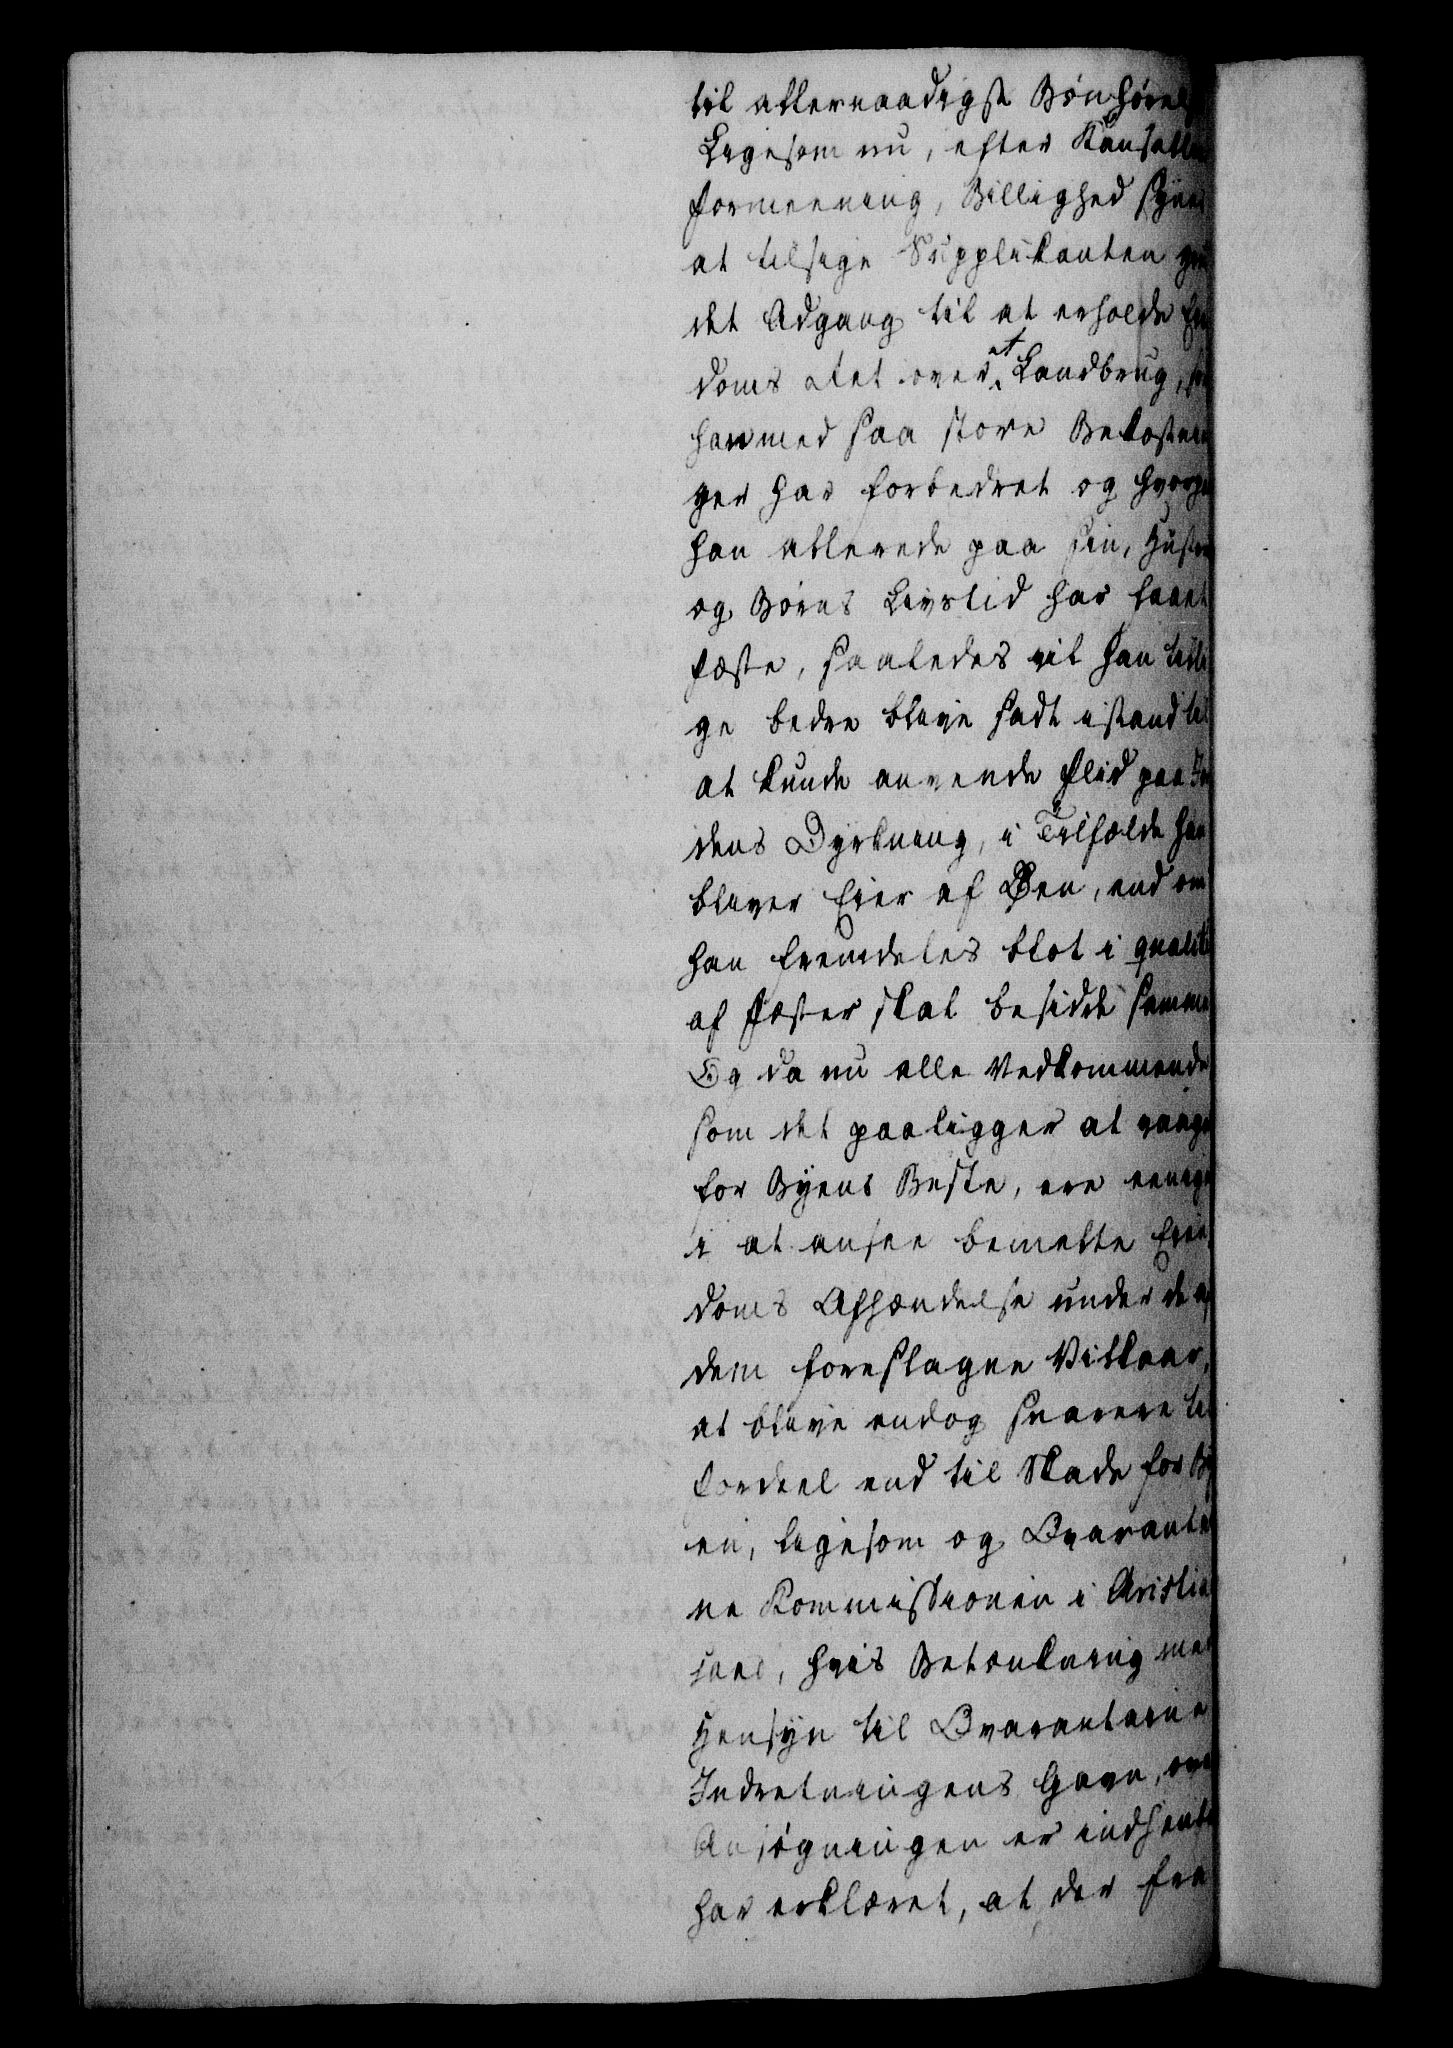 til allernaadigst Bønhørels
Ligesom nu, efter Kansellie
formeening, Billighed synes
at tilsige Supplikanten
det Adgang til at erholde Ei
doms Ret over et Landbrug,
han med saa store Bekostnin
ger har forbedret og hvorpaa
han allerede paa sin, Hustru
og Børns Livstid har faaet
fæste, saaledes vil han tilli
ge bedre blive sadt istand til
at kunde anvende flid paa Jor
dens Dyrkning, i Tilfælde han
bliver Eier af Øen, end om
han fremdeles blot i qualite
af fæster skal besidde samme
Og da nu alle Vedkommende
som det paaligger at vaage
for Byens Beste, ere eenige
i at ansee bemelte Eien
doms Afhændelse under de af
dem foreslagne Vilkaar,
at blive endog snarere til
fordeel end til Skade for By
en, ligesom og Qvarantai
ne Kommissionen i Christian
sand, hvis Betænkning med
Hensyn til Qvarantaine
Indretningens Gavn, over
Ansøgningen er indhentet
har erklæret, at der fra